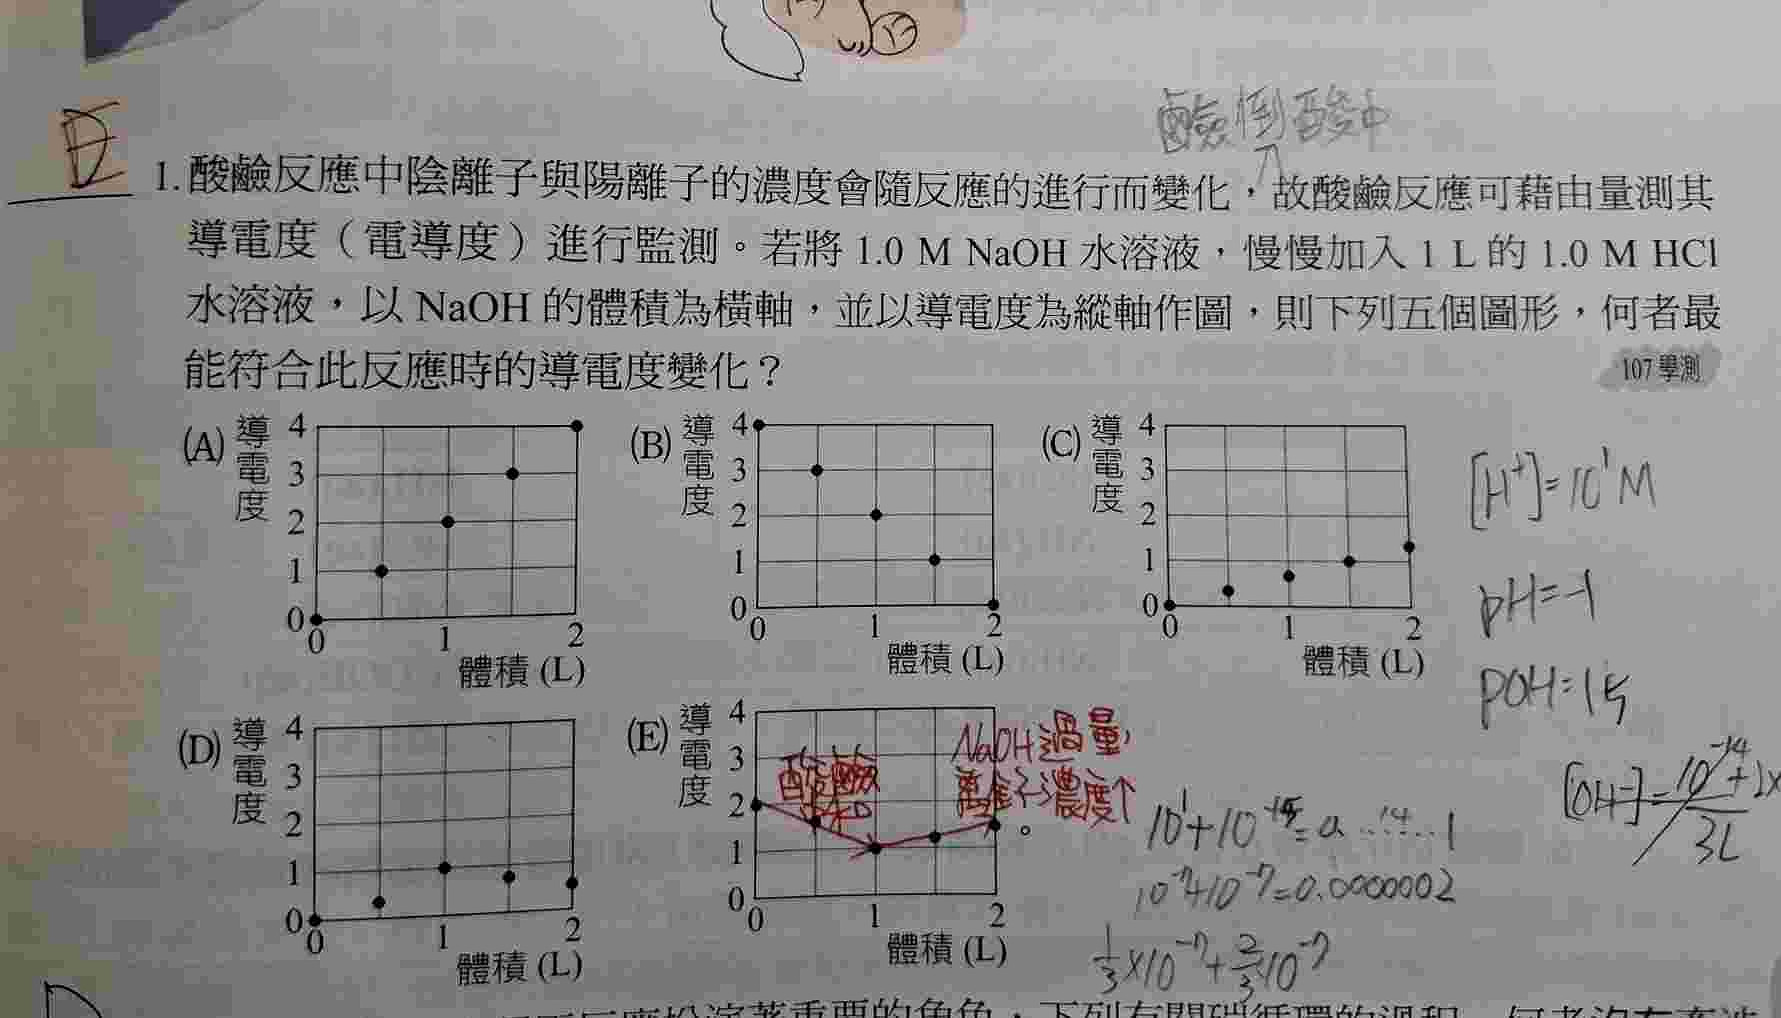 鹼倒酸中
E
1.酸鹼反應中陰離子與陽離子的濃度會隨反應的進行而變化，故酸鹼反應可藉由量測其
導電度（電導度）進行監測。若將 1.0 M NaOH 水溶液，慢慢加入 1 L 的 1.0 M HCl
水溶液，以 NaOH 的體積為橫軸，並以導電度為縱軸作圖，則下列五個圖形，何者最
能符合此反應時的導電度變化？
107 學測
(A) 導電度
4
3
2
1
0
0 1 2
體積 (L)
(B) 導電度
4
3
2
1
0
0 1 2
體積 (L)
(C) 導電度
4
3
2
1
0
0 1 2
體積 (L)
[H⁺]=10¹M
pH=-1
pOH=15
(D) 導電度
4
3
2
1
0
0 1 2
體積 (L)
(E) 導電度
4
3
2
1
0
0 1 2
體積 (L)
酸鹼
中和
NaOH過量，
離子濃度↑
10⁻⁷+10⁻⁷=0.0000002
1/3×10⁻⁷+2/3×10⁻⁷